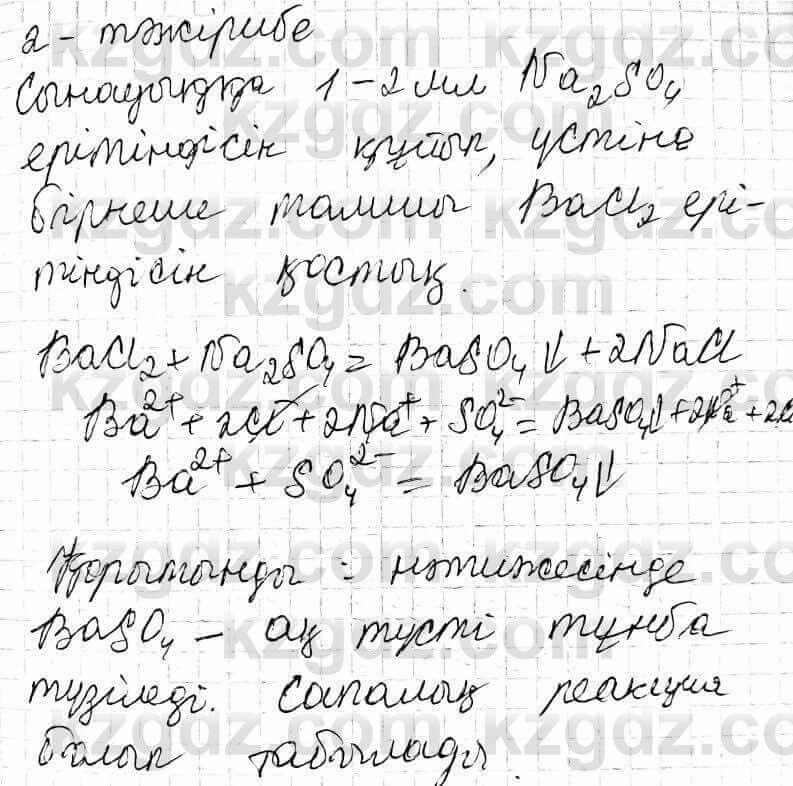 2 - тәжірибе
Сынауыққа 1-2 мл Na₂SO₄
ерітіндісін құйып, үстіне
бірнеше тамшы BaCl₂ ері-
тіндісін қостық.
BaCl₂ + Na₂SO₄ = BaSO₄↓ + 2NaCl
Ba²⁺ + 2Cl⁻ + 2Na⁺ + SO₄²⁻ = BaSO₄↓ + 2Na⁺ + 2C
Ba²⁺ + SO₄²⁻ = BaSO₄↓
Қорытынды: нәтижесінде
BaSO₄ – ақ түсті тұнба
түзіледі. Сапалық реакция
болып табылады.
kzgdz.com